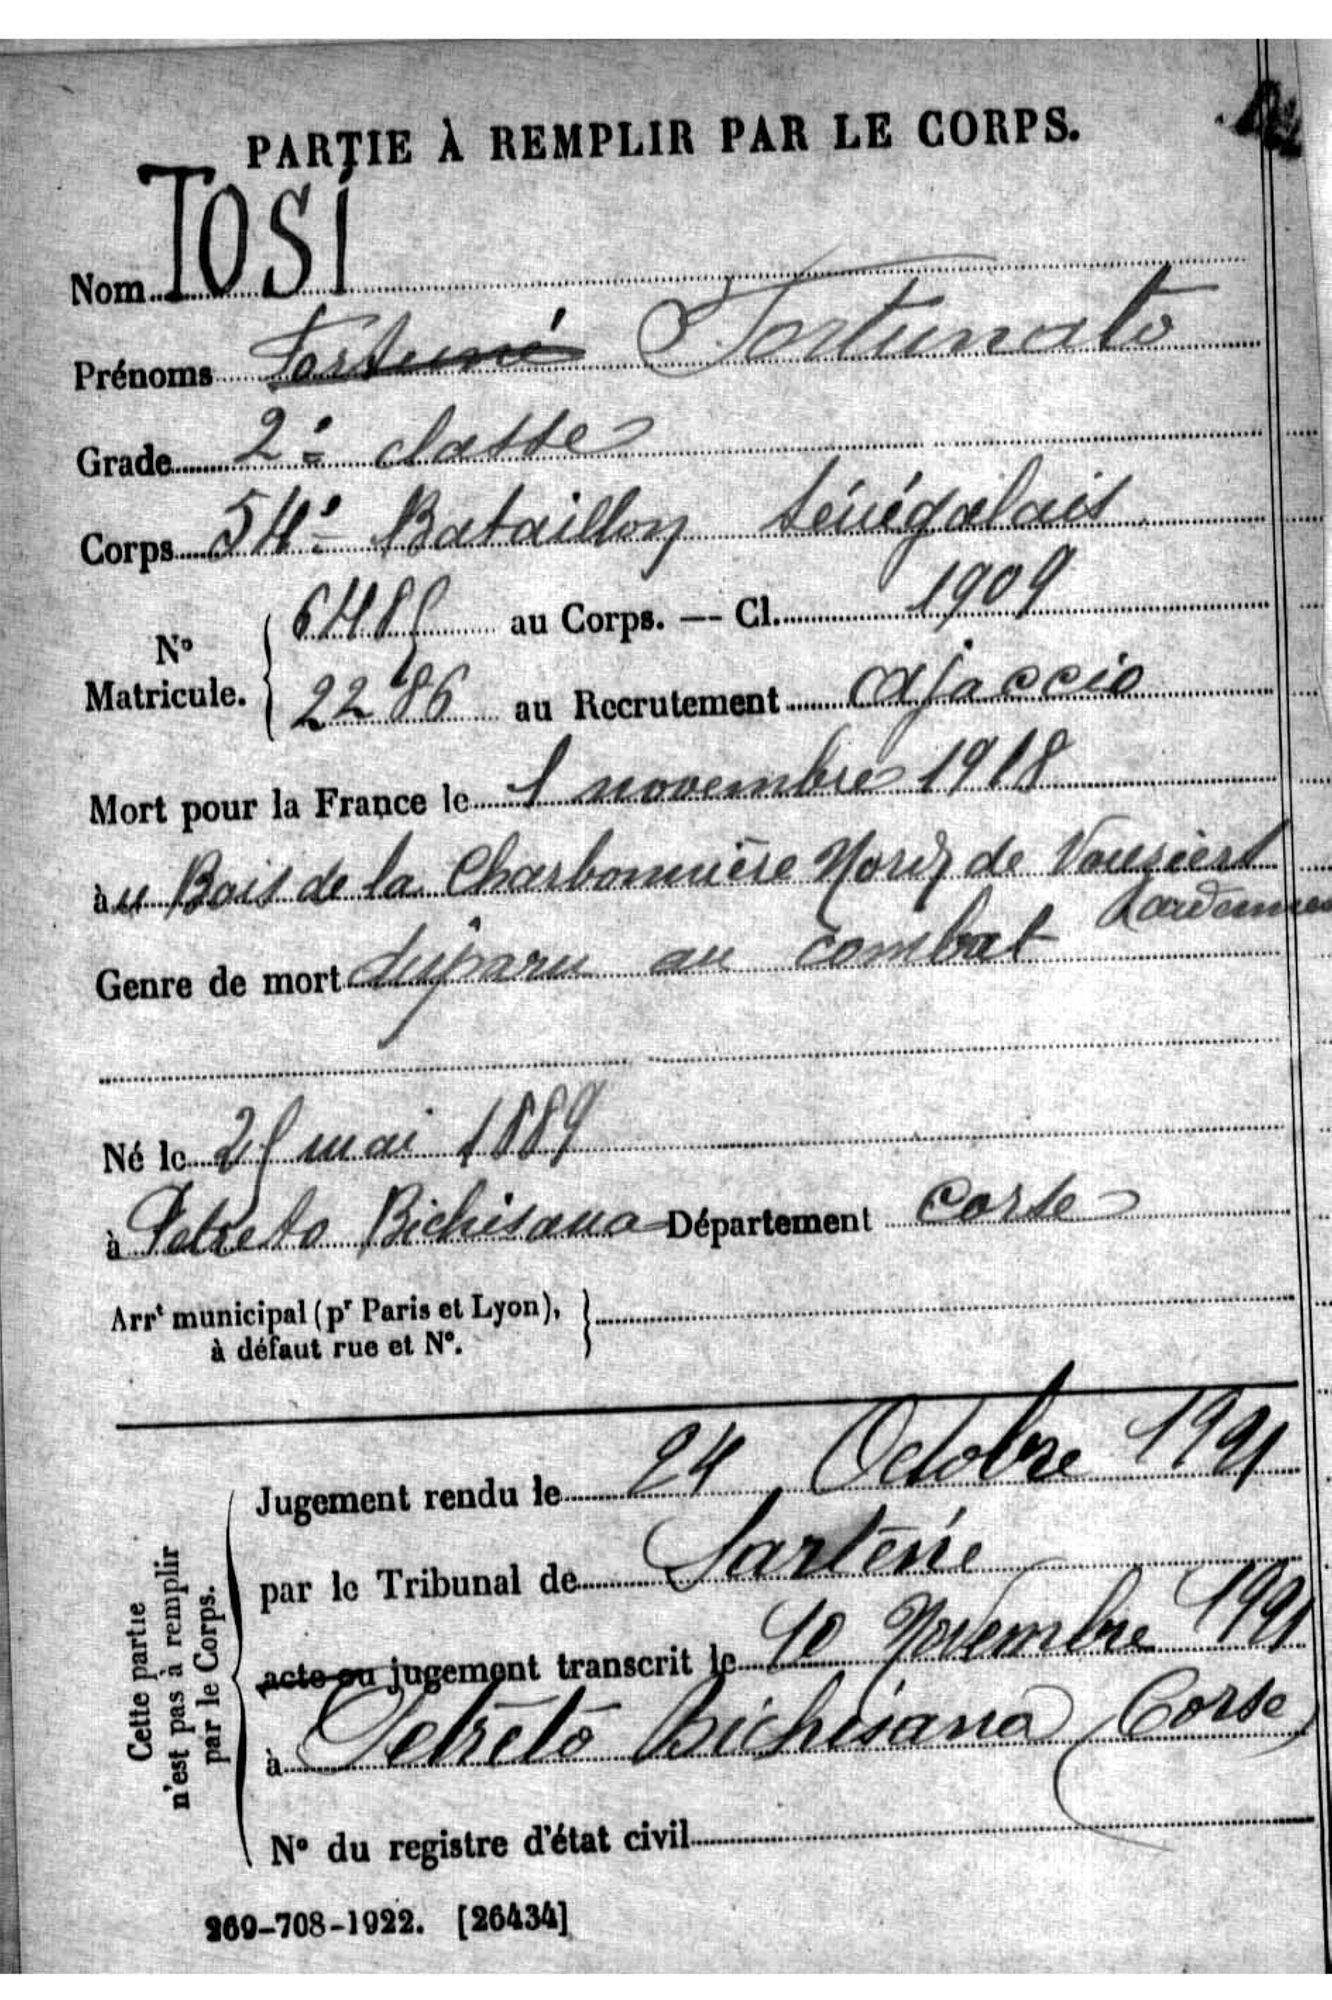 PARTIE À REMPLIR PAR LE CORPS.
Nom TOSI
Prénoms Fortuné Fortunato
Grade 2e classe
Corps 54e Bataillon Sénégalais
No Matricule. 6485 au Corps. — Cl. 1909
2286 au Recrutement Ajaccio
Mort pour la France le 1 novembre 1918
à u Bois de la Charbonnière Nord de Vouziers
Ardennes
Genre de mort disparu au combat
Né le 25 mai 1889
à Petreto Bichisana Département Corse
Arrt municipal (pr Paris et Lyon),
à défaut rue et No.
Cette partie
n'est pas à remplir
par le Corps.
Jugement rendu le 24 Octobre 1921
par le Tribunal de Sartène
acte ou jugement transcrit le 10 Novembre 1921
à Petreto Bichisana (Corse)
No du registre d'état civil
269-708-1922. [26434]